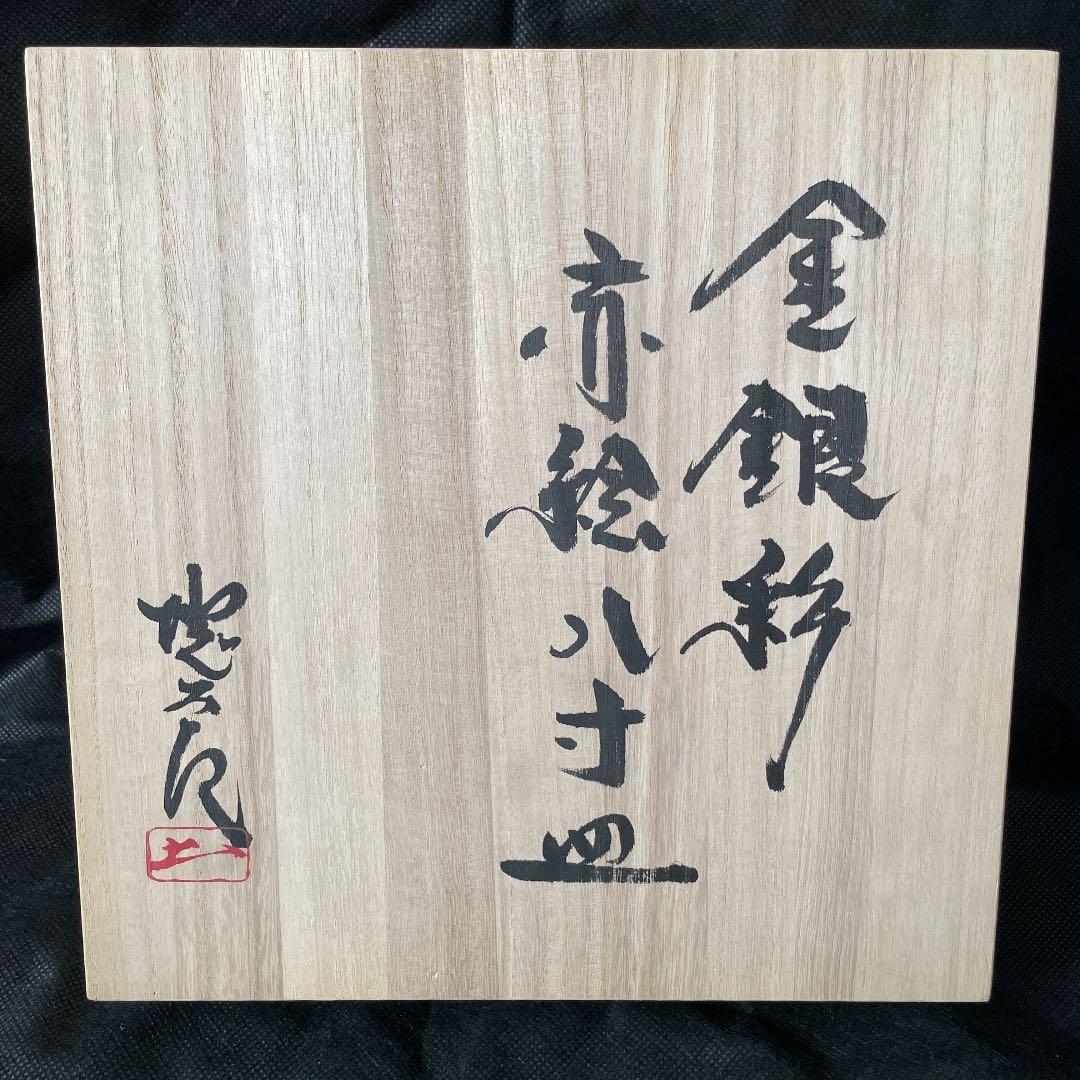 金銀彩
赤絵八寸皿